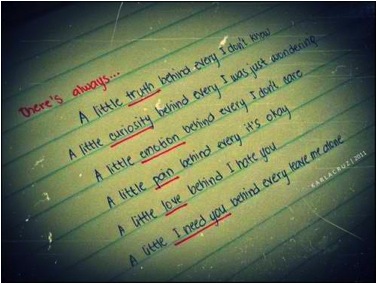 There's always...
A little truth behind every I don't know
A little curiosity behind every I was just wondering
A little emotion behind every I don't care
A little pain behind every it's okay
A little love behind I hate you
A little I need you behind every leave me alone
KARLACRUZ | 2011